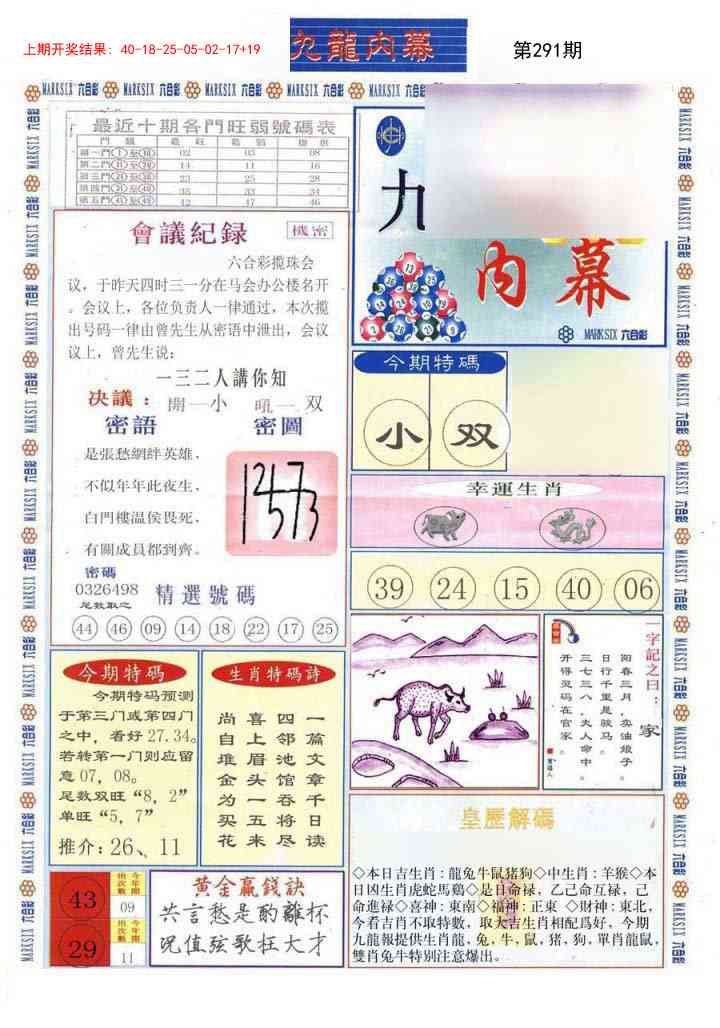 上期开奖结果: 40-18-25-05-02-17+19
九龍內幕
第291期
MARKSIX 六合彩
最近十期各門旺弱號碼表
第一門①至⑩ 02 03 08
第二門⑪至⑳ 14 11 16
第三門㉑至㉚ 23 25 28
第四門㉛至㊵ 35 33 34
第五門㊶至㊾ 42 47 46
會議紀録
機密
六合彩攪珠会
议，于昨天四时三一分在马会办公楼名开
。会议上，各位负责人一律通过，本次攪
出号码一律由曾先生从密语中泄出，会议
议上，曾先生说：
一三二人講你知
决議：開一小 吼一双
密語
密圖
是張愁網絆英雄，
不似年年此夜生，
白門樓溫侯畏死，
有關成員都到齊。
密碼
0326498
足数取之
精選號碼
44 46 09 14 18 22 17 25
九
内幕
MARKSIX 六合彩
今期特碼
小 双
幸運生肖
39 24 15 40 06
一字記之曰：家
阳春三月，卖油娘子。
日行千里是骏马。
三七三八，夫人命中。
开得灵码在官家。
今期特碼
今期特码预测
于第三门或第四门
之中，看好27.34。
若转第一门则应留
意07，08。
足数双旺“8，2”
单旺“5，7”
推介：26、11
生肖特碼詩
一篇文章千日读
四邻池馆吞将尽
喜上眉头一五来
尚自堆金为买花
43
今年開出次數
09
29
今年開出次數
11
黄金赢錢訣
共言愁是酌離杯
况值弦歌枉大才
皇歷解碼
◇本日吉生肖：龍兔牛鼠猪狗◇中生肖：羊猴◇本
日凶生肖虎蛇馬鷄◇是日命禄，乙己命互禄，己
命進禄◇喜神：東南◇福神：正東 ◇财神：東北，
今看吉肖不取特數，取大吉生肖相配爲好，今期
九龍報提供生肖龍，兔，牛，鼠，猪，狗，單肖龍鼠，
雙肖兔牛特别注意爆出。